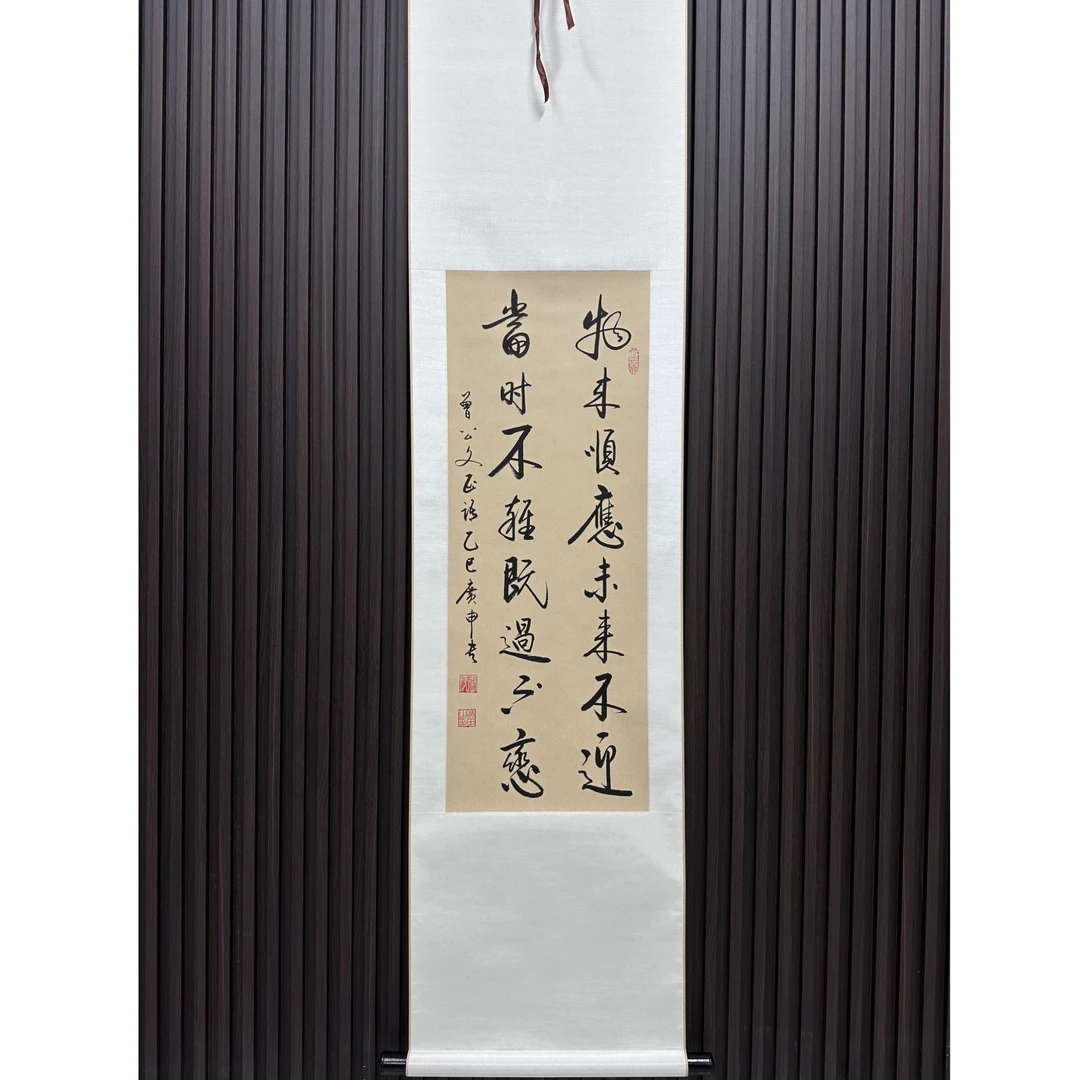 物来順應未来不迎
當时不雜既過不戀
曾公文正語乙巳廣申书